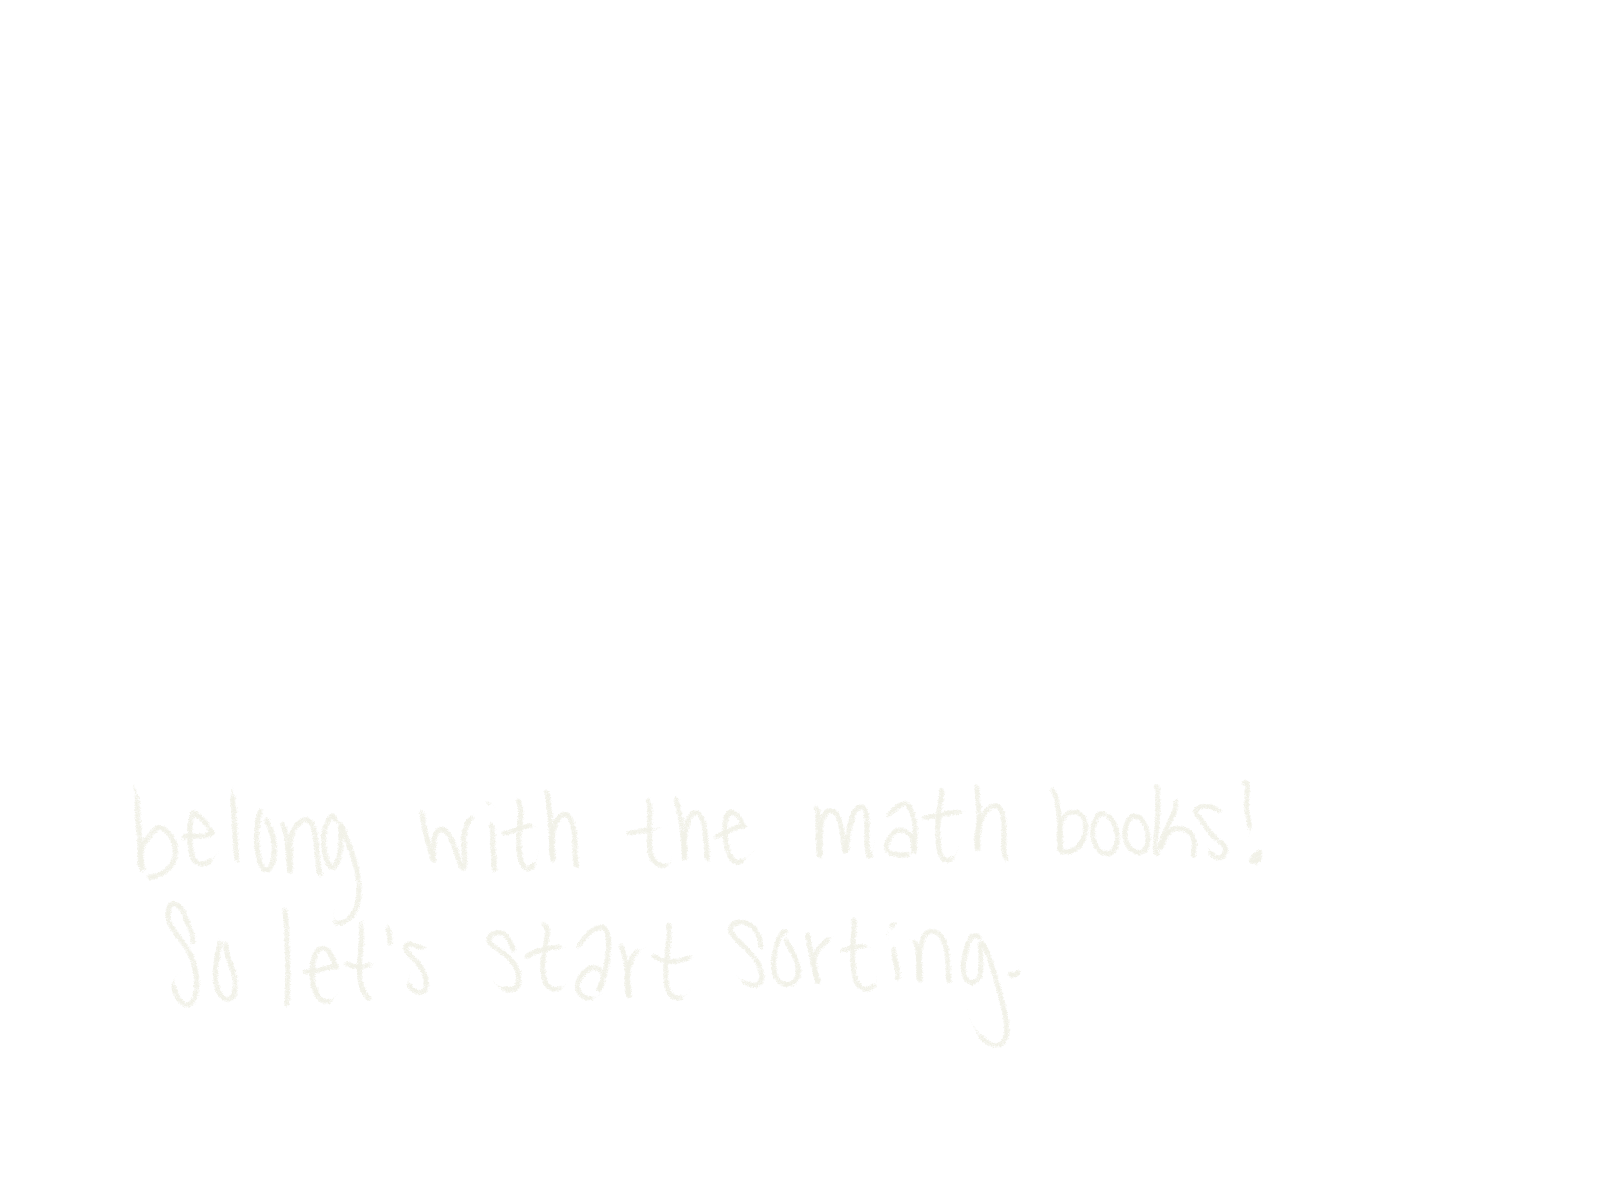 belong with the math books!
So let's start sorting.